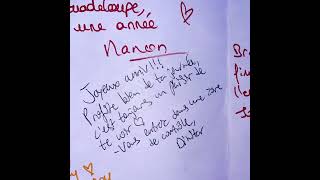 Guadeloupe,
une année
Manon
Joyeux anniv!!!
Profite bien de ta journée,
c'est toujours un plaisir de
te voir
-Vous entrez dans une zone
de contrôle,